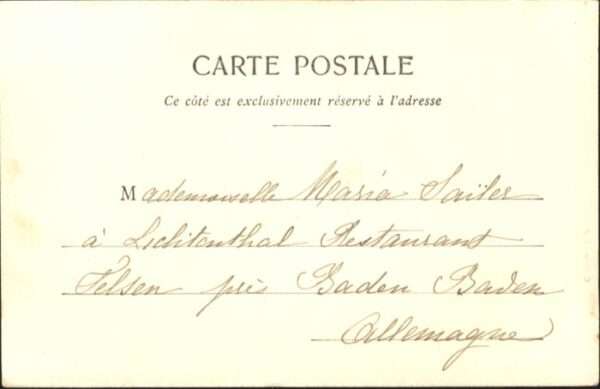 CARTE POSTALE
Ce côté est exclusivement réservé à l'adresse
Mademoiselle Maria Sailer
à Lichtenthal Restaurant
Felsen près Baden Baden
Allemagne